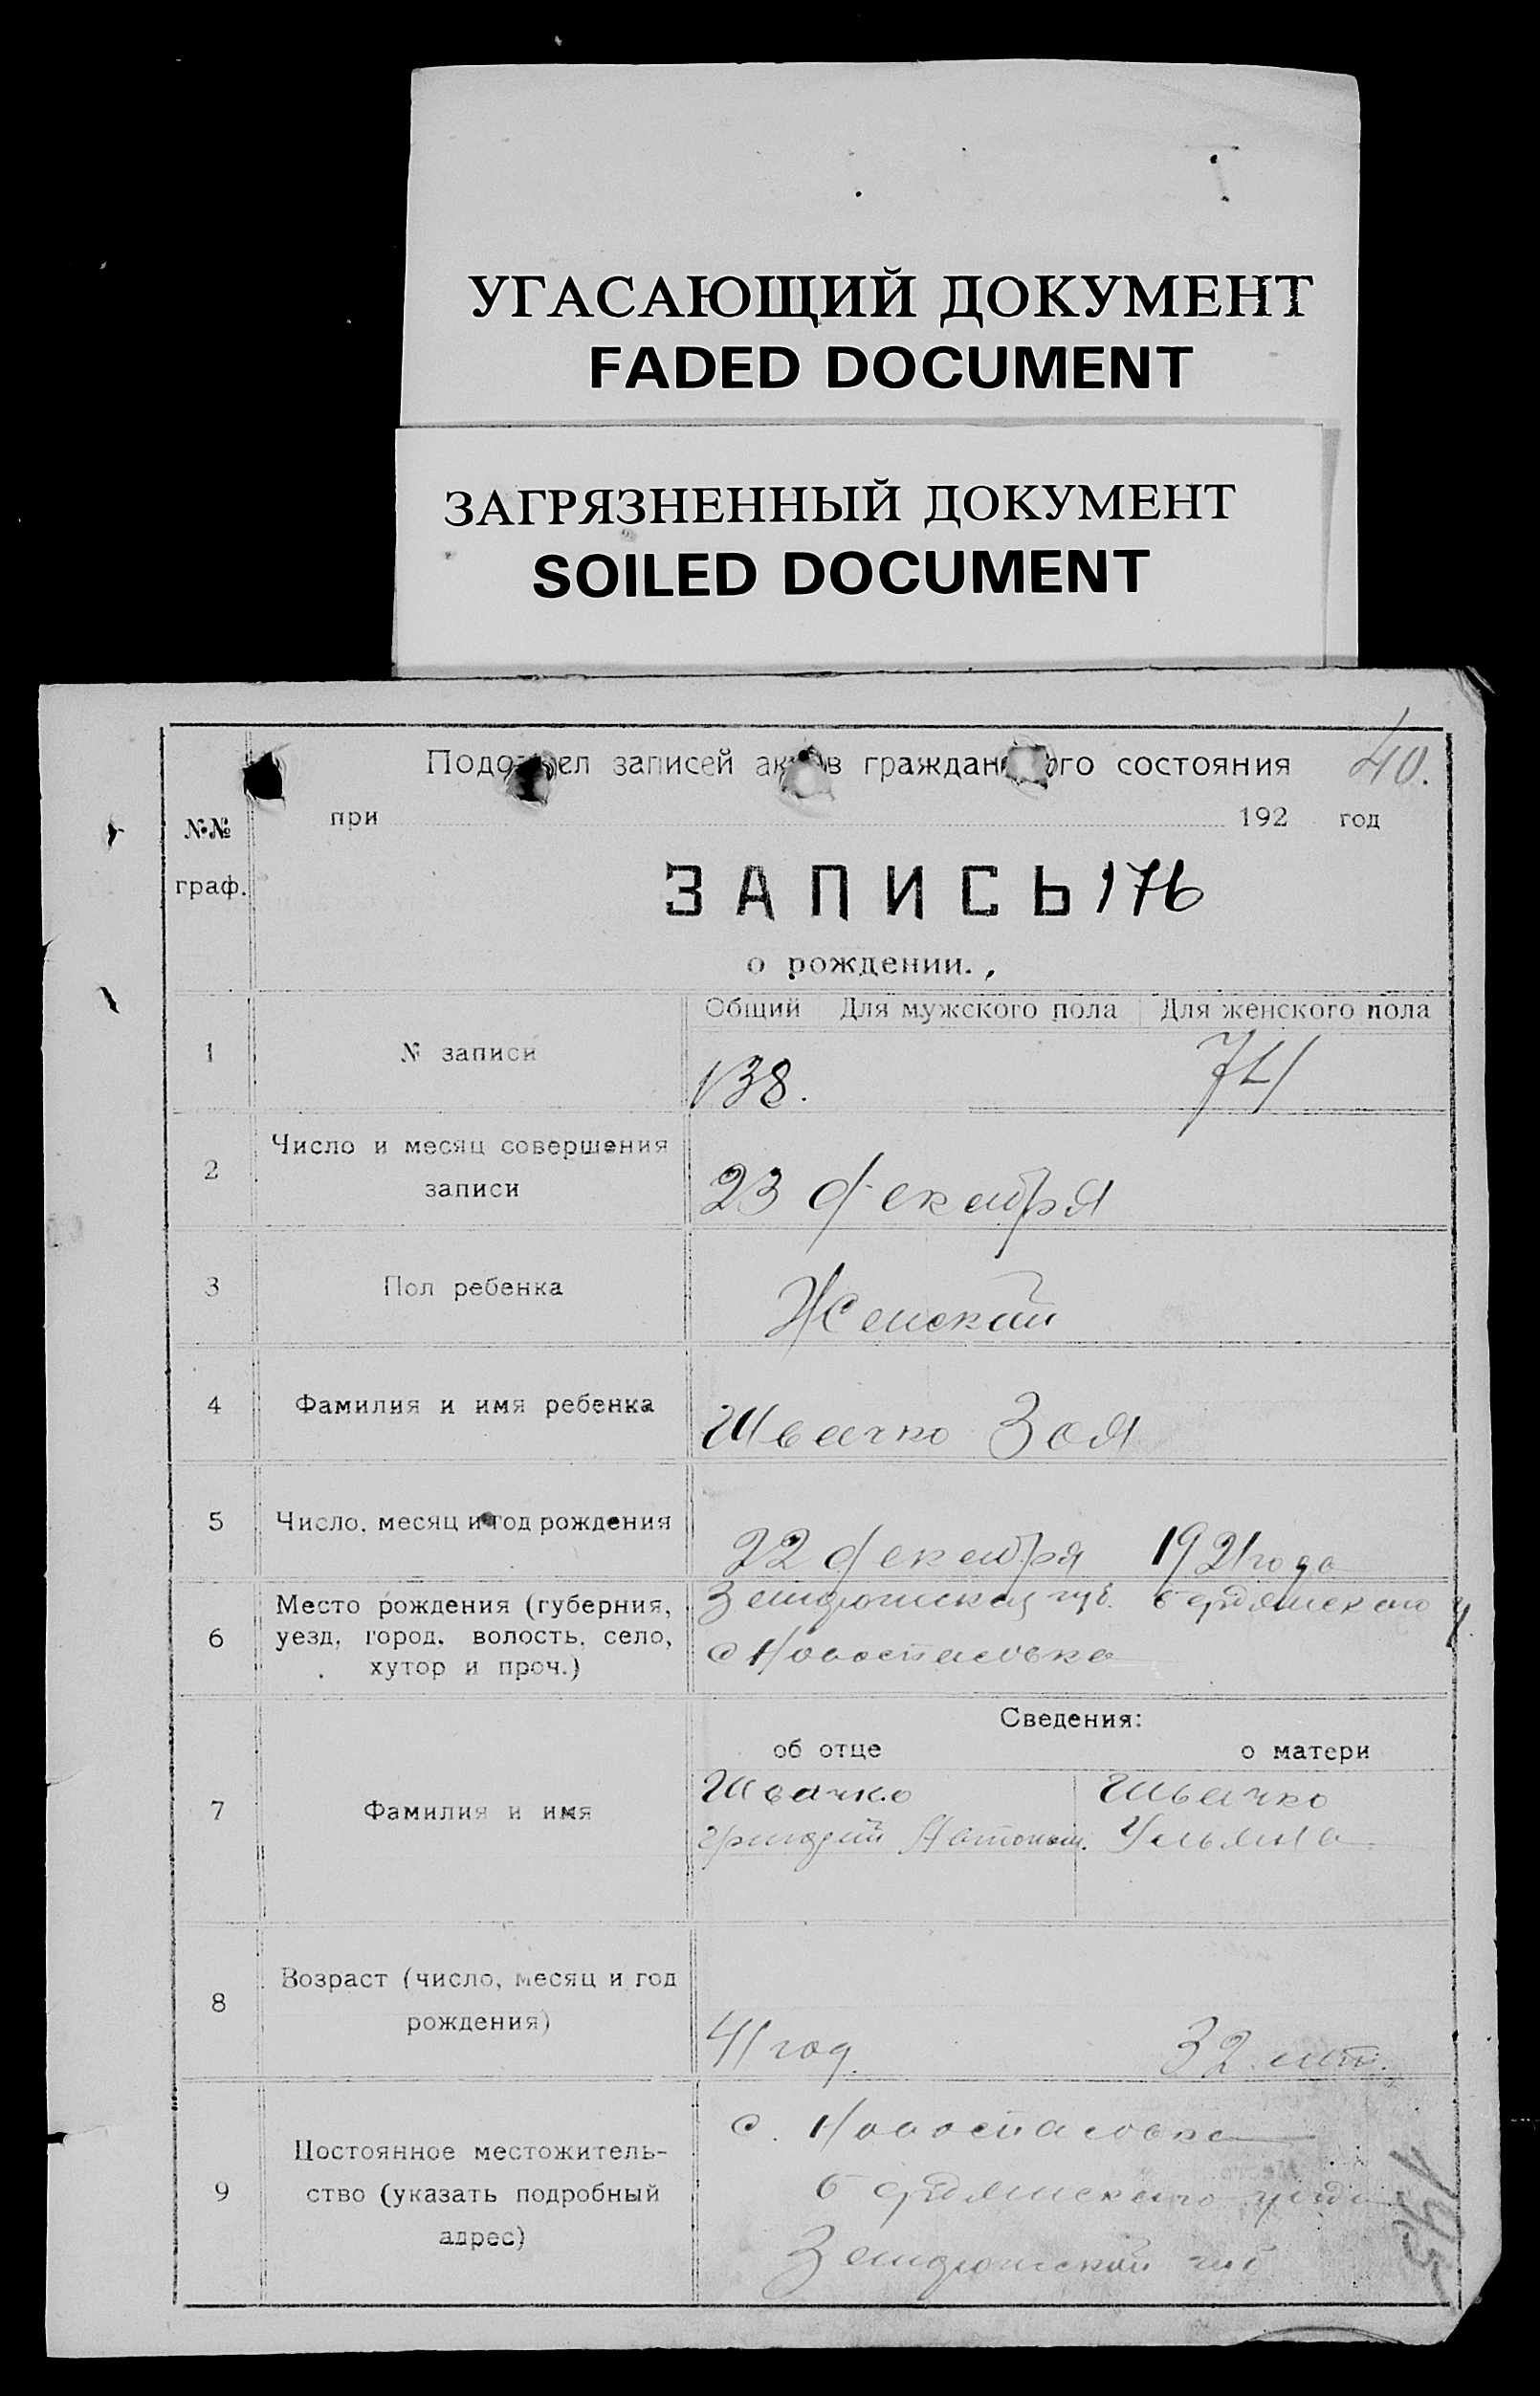 УГАСАЮЩИЙ ДОКУМЕНТ
FADED DOCUMENT
ЗАГРЯЗНЕННЫЙ ДОКУМЕНТ
SOILED DOCUMENT
Подотдел записей актов гражданского состояния 40.
при 192 год
№№
граф.
ЗАПИСЬ 176
о рождении.
Общий Для мужского пола Для женского пола
1 № записи 138. 74
2 Число и месяц совершения
записи 23 декабря
3 Пол ребенка Женский
4 Фамилия и имя ребенка Швачко Зоя
5 Число, месяц и год рождения 22 декабря 1921 года
6 Место рождения (губерния,
уезд, город, волость, село,
хутор и проч.)
губ. бердянского у.
с Новоспасовка
Сведения:
об отце о матери
7 Фамилия и имя
Швачко Швачко
Григорий Ульяна
8 Возраст (число, месяц и год
рождения)
41 год. 32 лет.
9 Постоянное местожитель-
ство (указать подробный
адрес)
с. Новоспасовка
бердянского уезда
губ
195